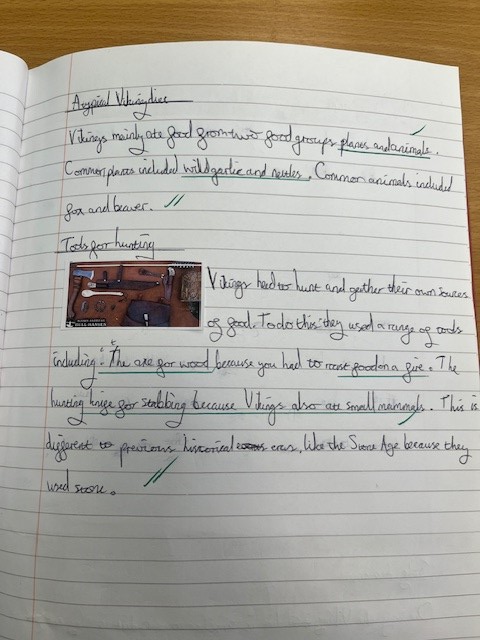 A typical Viking diet
Vikings mainly ate food from two food groups plants and animals.
Common plants included wild garlic and nettles. Common animals included
fox and beaver.
Tools for hunting
Vikings had to hunt and gather their own sources
of food. To do this they used a range of tools
including: The axe for wood because you had to roast food on a fire. The
hunting knife for stabbing because Vikings also ate small mammals. This is
different to previous historical eras, like the Stone Age because they
used stone.